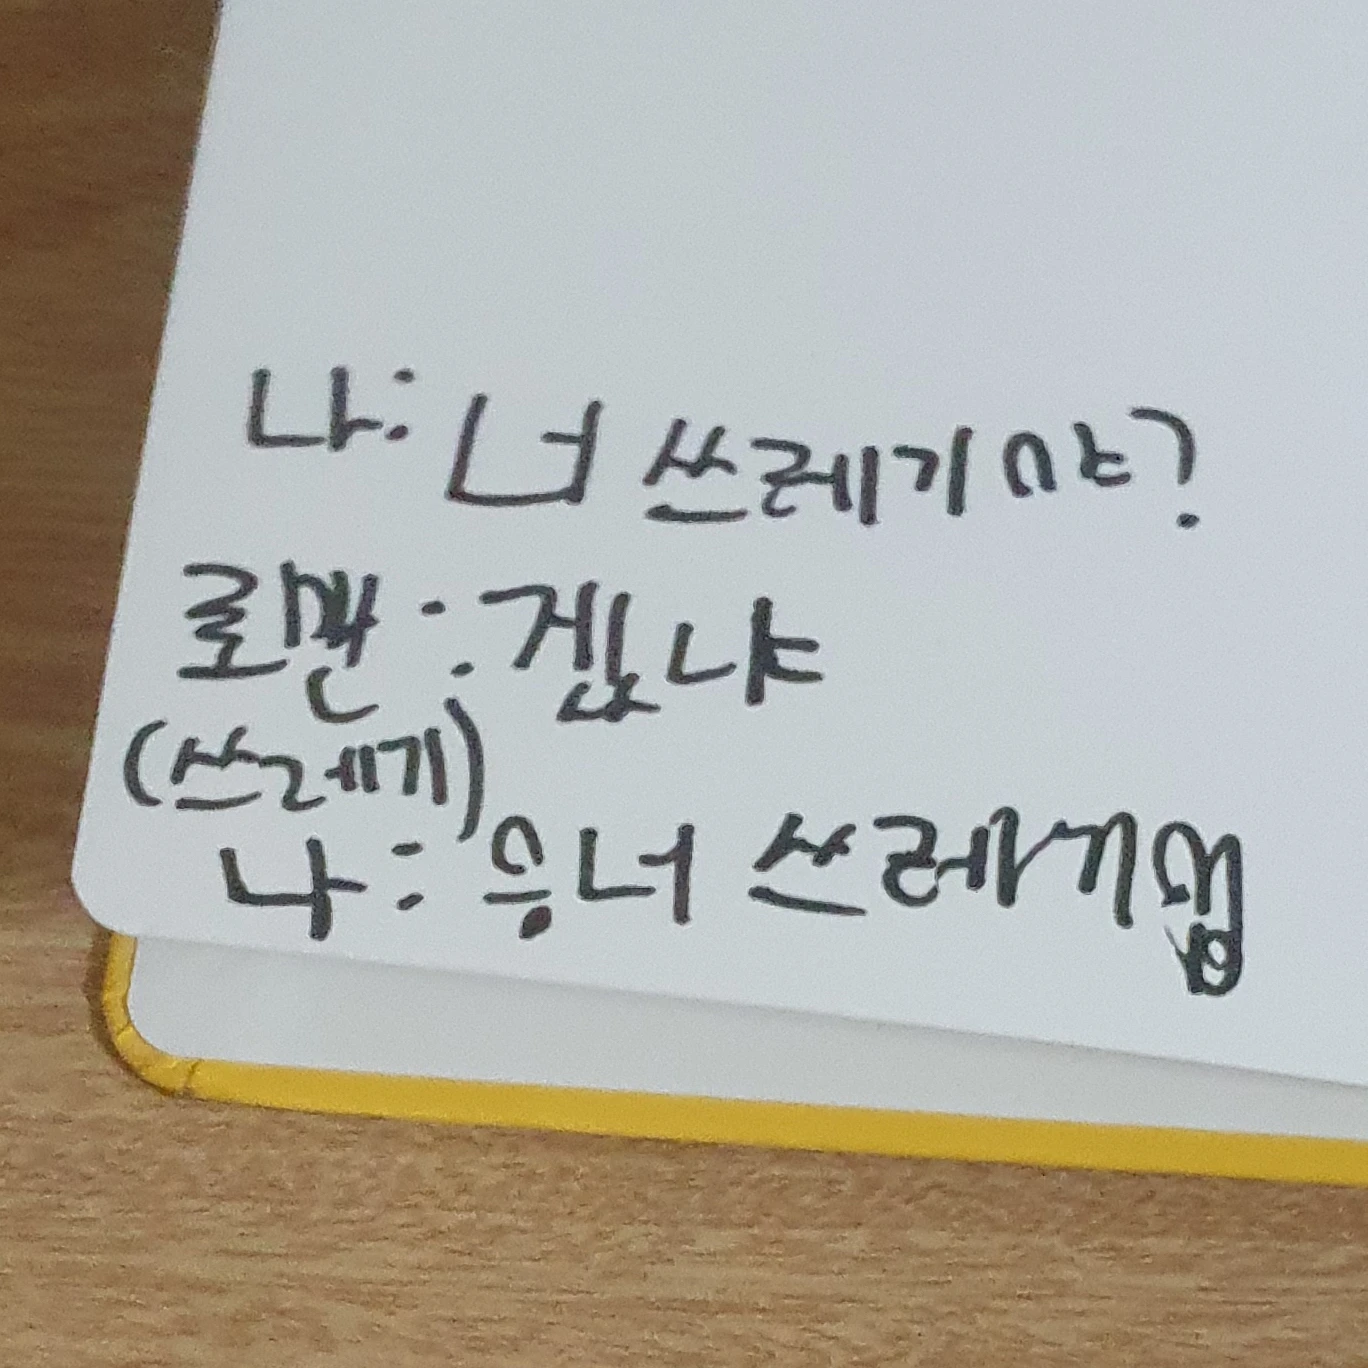 나: 너 쓰레기야?
로맨: 겠냐
(쓰레기)
나: 응 너 쓰레기